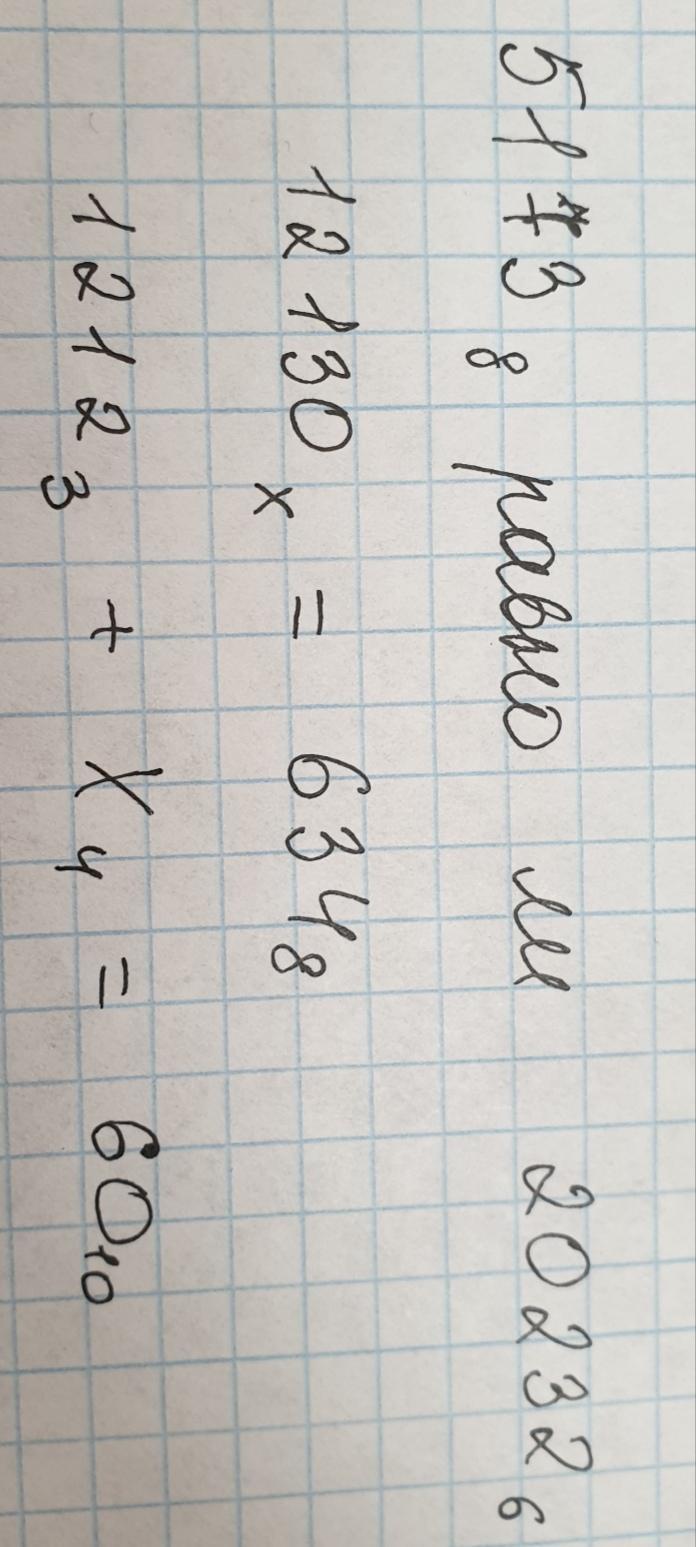 5173₈ равно ли 20232₆
12130ₓ = 634₈
1212₃ + X₄ = 60₁₀